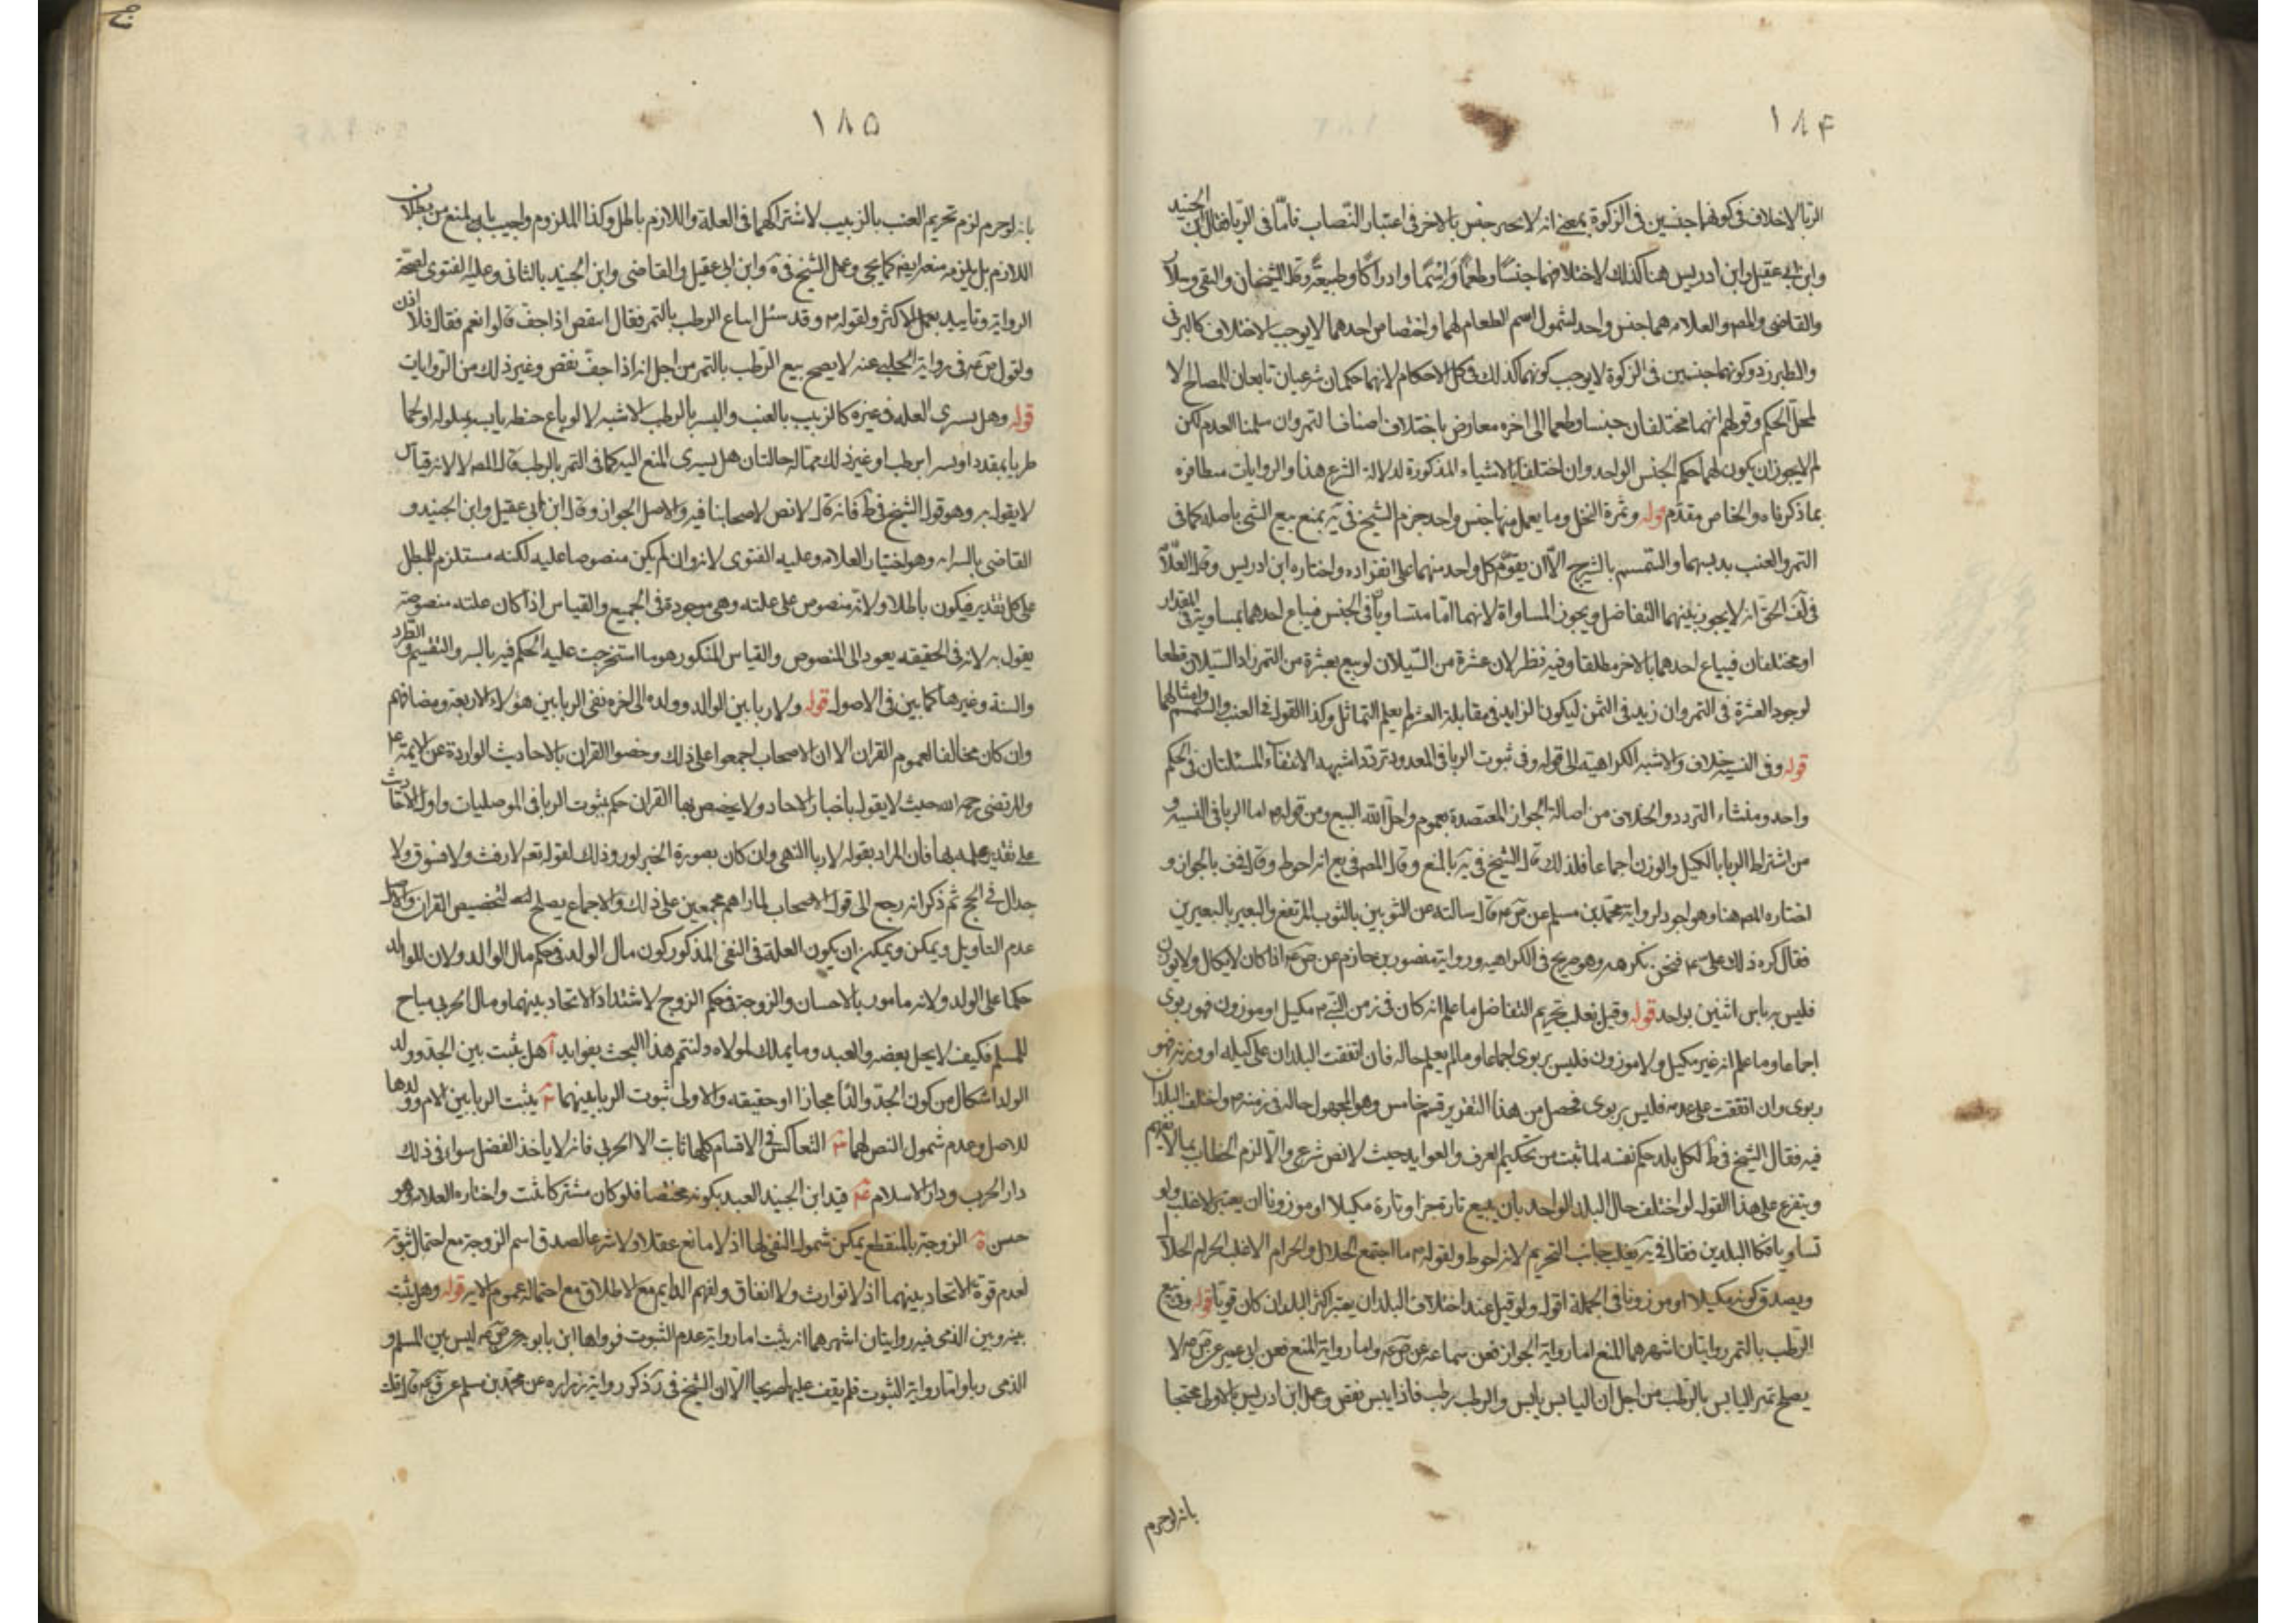 ١٨۴
الربا لاخلاف فى كونهما جنسين فى الزكوة بمعنى انه لا يجبر جنس بالاخر فى اعتبار النصاب فامّا فى الربا فقال ابن الجنيد
وابن ابى عقيل وابن ادريس هنا كذلك لاختلافهما جنسًا وطعمًا واِسْمًا وادراكًا وطبيعةً وقال الشيخان والتقى وسلار
والقاضى والمص والعلامه هما جنس واحد لشمول اسم الطعام لهما واختصاص احدهما لا يوجب الاختلاف كالبرنى
والطبرزد وكونهما جنسين فى الزكوة لا يوجب كونهما كذلك فى كل الاحكام لانهما حكمان شرعيان تابعان للمصالح لا
لمحل الحكم وقولهم انهما مختلفان جنسا وطعما الى اخره معارض باختلاف اصناف التمر وان سلمنا العدم لكن
لم لا يجوز ان يكون لهما حكم الجنس الواحد وان اختلفا بالاشياء المذكورة لدلالة الشرع هذا والروايات متظافره
بما ذكرناه والخاص مقدّم قوله وثمرة النخل وما يعمل منها جنس واحد جزم الشيخ فى يه بمنع بيع الشى باصله كما فى
التمر والعنب بدبسهما والسّمسم بالشيرج الّا ان يقوّم كل واحد منهما على انفراده واختاره ابن ادريس وقال العلّامة
فى لف الحق انه لا يجوز بينهما التفاضل ويجوز المساواة لانهما امّا متساويان فى الجنس فيباع احدهما بمساويه فى المقدار
او مختلفان فيباع احدهما بالاخر مطلقا وفيه نظر لان عشرة من السّيلان لو بيع بعشرة من التمر زاد السّيلان قطعا
لوجود العشرة فى التمر وان زيد فى الثمن ليكون الزايد فى مقابلة العشر لم يعلم التماثل وكذا القول فى العنب والسمسم وامثالهما
قوله وفى النسيه خلاف والاشبه الكراهية الى قوله وفى ثبوت الربا فى المعدود تردد اشبهه الانتفاء المسئلتان فى الحكم
واحد ومنشاء التردد والخلاف من اصالة الجواز المعتضدة بعموم واحل الله البيع ومن قوله انما الربا فى النسيه و
من اشتراط الربا بالكيل والوزن اجماعا فلذلك قال الشيخ فى يه بالمنع وقال المص فى يع انه احوط وقال فى ف بالجواز و
اختاره المص هنا وهو اجود لرواية محمد بن مسلم عن ص ع قال سالته عن الثوبين بالثوب المرتفع والبعير بالبعيرين
فقال كره ذلك على ع فنحن نكرهه وهو صريح فى الكراهيه ورواية منصور بن حازم عن ص ع اذا كان لا يكال ولا يوزن
فليس به باس اثنين بواحد قوله وقيل يغلب تحريم التفاضل ما علم انه كان فى زمن النبى مكيل او موزون فهو ربوى
اجماعا وما علم انه غير مكيل ولا موزون فليس بربوى اجماعا وما لم يعلم حاله فان اتفقت البلدان على كيله او وزنه فهو
ربوى وان اتفقت على عدمه فليس بربوى فحصل من هذا التقرير قسم خامس وهو المجهول حاله فى زمنه واختلف البلدان
فيه فقال الشيخ فى ط لكل بلد حكم نفسه لما ثبت من تحكيم العرف والعوايد حيث لا نص شرعى والّا لزم الخطاب بما لا يفهم
ويتفرع على هذا القول لو اختلف حال البلد الواحد بان يبيع تارة جزافا وتارة مكيلا او موزونا ان يعتبر الاغلب ولو
تساويا فكالبلدين فقال فى يه يغلب جانب التحريم لانه احوط ولقوله ما اجتمع الحلال والحرام الا غلب الحرام الحلال
ويصدق كونه مكيلا او موزونا فى الجملة اقول ولو قيل عند اختلاف البلدان يعتبر اكثر البلدان كان قويا قوله وفى بيع
الرّطب بالتمر روايتان اشهرهما المنع اما رواية الجواز فعن سماعه عن ص ع واما رواية المنع فعن ابى بصير عن ص ع لا
يصلح تمر اليابس بالرطب من اجل ان اليابس يابس والرطب رطب فاذا يبس نقص وعمل ابن ادريس بالاولى محتجا
بانه لو حرم
١٨۵
بانه لو حرم لزم تحريم العنب بالزبيب لاشتراكهما فى العلة واللازم باطل وكذا الملزوم واجيب بالمنع من بطلان
اللازم بل يلزمه منعه ايضا كما يجى وعمل الشيخ فى يه وابن ابى عقيل والقاضى وابن الجنيد بالثانى وعليه الفتوى لصحة
الرواية وتاييد بعمل الاكثر ولقوله وقد سئل ايباع الرطب بالتمر فقال اينقص اذا جف قالوا نعم فقال فلا اذن
ولقول ص ع فى رواية الحلبى عنه لا يصح بيع الرّطب بالتمر من اجل انه اذا جفّ نقص وغير ذلك من الروايات
قوله وهل يسرى العله فى غيره كالزبيب بالعنب والبسر بالرطب الاشبه لا لو باع حنطه يابسه بمبلوله او لحما
طريا بمقدد او بسرا برطب او غير ذلك مما له حالتان هل يسرى المنع اليه كما فى التمر بالرطب قال المص لا لانه قياس
لا يقول به وهو قول الشيخ فى ط فانه قال لا نص لاصحابنا فيه والاصل الجواز وقال ابن ابى عقيل وابن الجنيد و
القاضى بالسرايه وهو اختيار العلامه وعليه الفتوى لانه وان لم يكن منصوصا عليه لكنه مستلزم للمبطل
على كل تقدير فيكون باطلا ولانه منصوص على علته وهى موجودة فى الجميع والقياس اذا كان علته منصوصة
يقول به لانه فى الحقيقه يعود الى المنصوص والقياس المنكور هو ما استخرجت عليه الحكم فيه بالسبر والتقسيم والطرد
والسنة وغيرها كما بين فى الاصول قوله ولا ربا بين الوالد وولده الى اخره نفى الربا بين هؤلاء الاربعة ومضافهم
وان كان مخالفا لعموم القران الا ان الاصحاب اجمعوا على ذلك وخصوا القران بالاحاديث الواردة عن الايمة ع
والمرتضى رحمه الله حيث لا يقول باخبار الاحاد ولا يخصص بها القران حكم بثبوت الربا فى الموصليات واول الاحاديث
على تقدير عمله بها فان المراد بقوله لا ربا النهى وان كان بصورة الخبر لورود ذلك لقوله تعم لا رفث ولا فسوق ولا
جدال فى الحج ثم ذكر انه رجع الى قول الاصحاب لما راهم مجمعين على ذلك والاجماع يصلح لتخصيص القران والاصل
عدم التاويل ويمكن ويمكن ان يكون العلة فى النفى المذكور كون مال الولد فى حكم مال الوالد ولان للوالد
حكما على الولد ولانه مامور بالاحسان والزوجة فى حكم الزوج لاشتداد الاتحاد بينهما ومال الحربى مباح
للمسلم فكيف لا يحل بعضه والعبد وما يملك لمولاه ولنتم هذا البحث بفوايد آ هل يثبت بين الجد وولد
الولد اشكال من كون الجدّ والدًا مجازا او حقيقه والاولى ثبوت الربا بينهما ٢ يثبت الربا بين الام وولدها
للاصل وعدم شمول النص لهما ٣ التعاكس فى الاقسام كلها ثابت الا الحربى فانه لا ياخذ الفضل سواء فى ذلك
دار الحرب ودار الاسلام ٤ قيد ابن الجنيد العبد بكونه مختصا فلو كان مشتركا يثبت واختاره العلامه وهو
حسن ة الزوجة بالمنقطع يمكن شمول النفى لها اذ لا مانع عقلا ولا شرعا لصدق اسم الزوجة مع احتمال ثبوته
لعدم قوة الاتحاد بينهما اذ لا توارث ولا انفاق ولفهم الدايم مع الاطلاق مع احتمال عموم الاية قوله وهل يثبت
بينه وبين الذمى فيه روايتان اشهرهما انه يثبت اما رواية عدم الثبوت فرواها ابن بابويه عن ص ع ليس بين المسلم و
الذمى ربا واما رواية الثبوت فلم يقف عليها صريحا الّا ان الشيخ فى يه ذكر رواية زراره عن محمد بن مسلم عن ق ع قال قلت